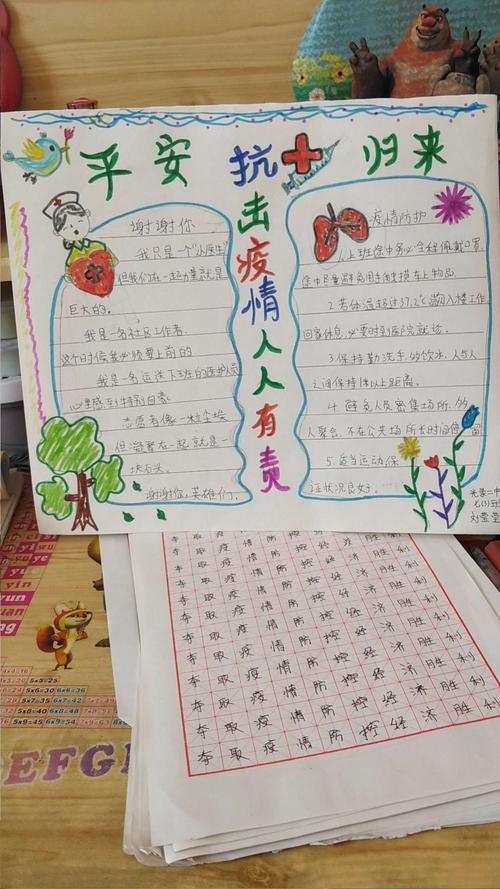 平安 抗 归来
击疫情人人有责
谢谢你
我只是一个“小医生”
但我们在一起力量就是
巨大的。
我是一名社区工作者.
这个时候我必须要上前的
我是一名运送下班的医护人员
心里感到特别自豪.
志愿者像一粒尘埃
但凝聚在一起就是一
块石头.
谢谢你,英雄们.
疫情防护
1.上班途中务必全程佩戴口罩
途中尽量避免用手触摸车上物品.
2.若体温超过37.2℃勿入楼工作
回家休息,必要时到医院就诊.
3.保持勤洗手.多饮水,人与人
之间保持1米以上距离.
4.避免人员密集场所.多
人聚会,不在公共场所长时间停留
5.适当运动,保
证状况良好.
七(1)班
刘莹莹
夺取疫情防控经济胜利
夺取疫情防控经济胜利
夺取疫情防控经济胜利
夺取疫情防控经济胜利
夺取疫情防控经济胜利
夺取疫情防控经济胜利
夺取疫情防控经济胜利
夺取疫情防控经济胜利
夺取疫情防控经济胜利
5x5=25
5x6=30 6x6=36
5x7=35 6x7=42
5x8=40 6x8=48
5x9=45 6x9=54
EFG